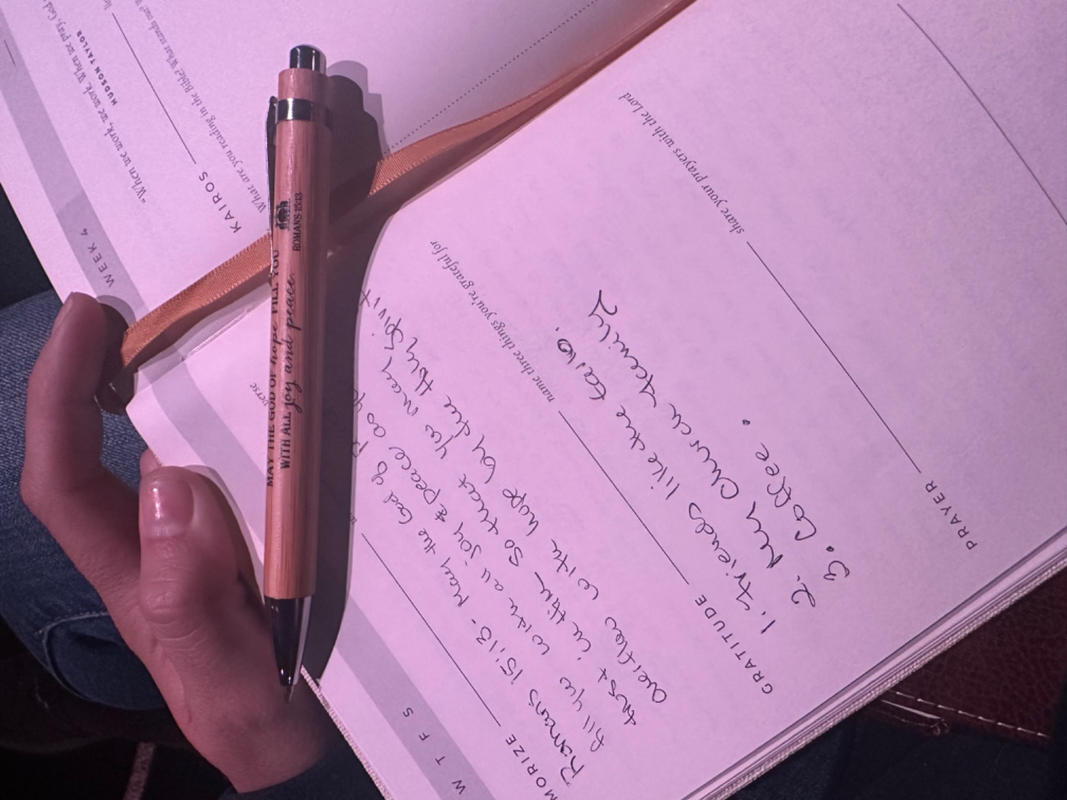 WEEK 4
"When we work, we work. When we pray, God
HUDSON TAYLOR
KAIROS
What are you reading in the Bible? What stands out?
MAY THE GOD OF hope FILL YOU
WITH ALL joy and peace
ROMANS 15:13
W T F S
MORIZE
verse
Romans 15:13 - May the God of
fill you with all joy & peace as yo
trust in Him so that you may
overflow with hope by the Holy Spirit
GRATITUDE
name three things you're grateful for
1. Friends like
2. My Church Family
3. Coffee.
PRAYER
share your prayers with the Lord